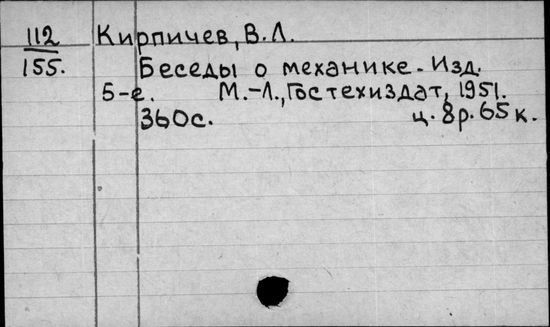 112 Кирпичев, В.Л.
155. Беседы о механике. Изд.
5-е. М.-Л., Гостехиздат, 1951.
360с. ц. 8р. 65к.